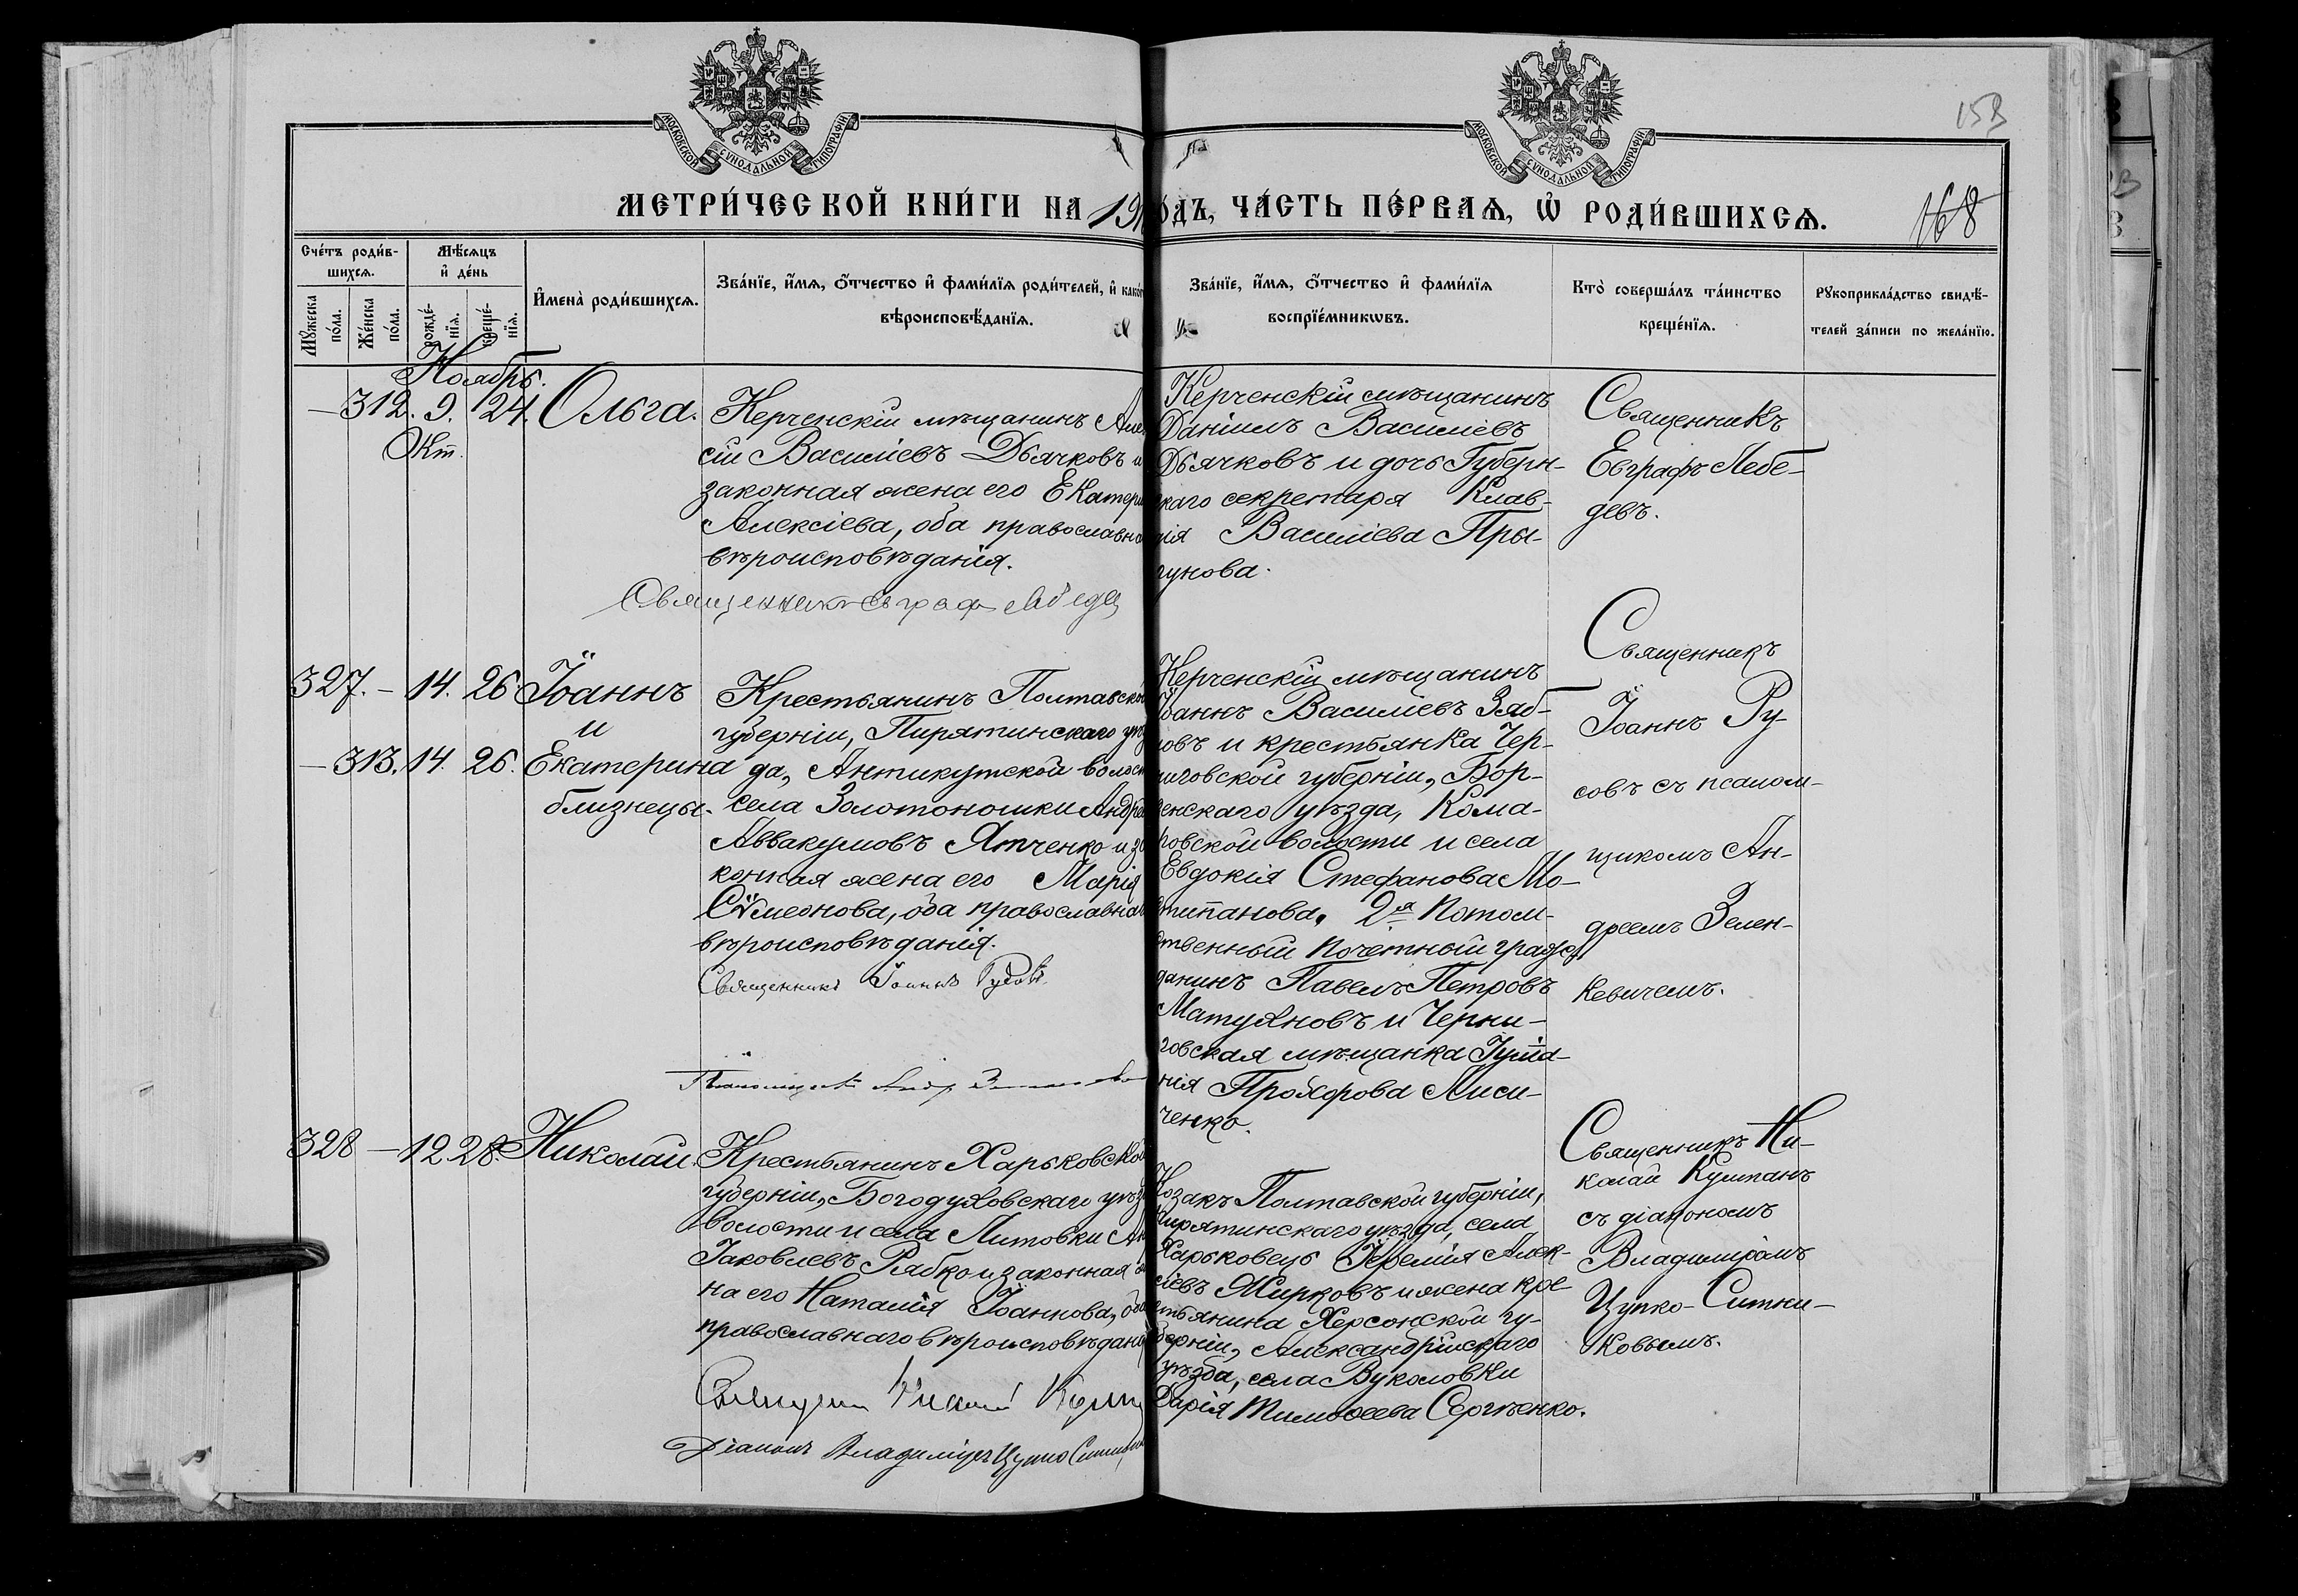 МОСКОВСКОЙ СѴНОДАЛЬНОЙ ТИПОГРАФІИ
МОСКОВСКОЙ СѴНОДАЛЬНОЙ ТИПОГРАФІИ
153
МЕТРИ́ЧЕСКОЙ КНИ́ГИ НА 191
ОДЪ, ЧА́СТЬ ПЕ́РВАѦ, Ѡ҆ РОДИ́ВШИХСѦ.
168
Сче́тъ роди́в-
шихсѧ.
Мꙋ́жеска
по́ла.
Же́нска
по́ла.
Мѣ́сѧцъ
и҆ де́нь
рожде́-
нїѧ.
креще́-
нїѧ.
И҆мена̀ роди́вшихсѧ.
Зва́нїе, и҆́мѧ, ѻ҆́тчество и҆ фами́лїѧ роди́телей, и҆ како́г
вѣроисповѣ́данїѧ.
Зва́нїе, и҆́мѧ, ѻ҆́тчество и҆ фами́лїѧ
воспрїе́мникѡвъ.
Кто̀ соверша́лъ та́инство
креще́нїѧ.
Рꙋкоприкла́дство свидѣ́-
телей за́писи по жела́нїю.
Ноябрь.
— 312. 9. 24. Ольга.
Окт.
Керченскій мѣщанинъ Але
сій Василіевъ Дьячковъ и
законная жена его Екатери
Алексіева, оба православна
вѣроисповѣданія.
Священникъ Евграфъ Лебеде
Керченскій мѣщанинъ
Даніилъ Василіевъ
Дьячковъ и дочь Губерн-
скаго секретаря Клав-
дія Василіева Пры-
гунова.
Священникъ
Евграфъ Лебе-
девъ.
327. — 14. 26. Іоаннъ
и
— 313. 14. 26. Екатерина
близнецы.
Крестьянинъ Полтавской
губерніи, Пирятинскаго уѣз
да, Антикутской волост
села Золотоношки Андре
Аввакумовъ Ятченко и за
конная жена его Марія
Сѵмеонова, оба православна
вѣроисповѣданія.
Священникъ Іоаннъ Русовъ
Керченскій мѣщанинъ
Іоаннъ Василіевъ Зяб-
ловъ и крестьянка Чер-
ниговской губерніи, Бор-
зенскаго уѣзда, Кома-
ровской волости и села
Евдокія Стефанова Мо-
2я Потом-
ственный почетный граж
данинъ Павелъ Петровъ
Матуяновъ и Черни-
говская мѣщанка Іулiа-
нія Прохорова Лиси-
ченко.
Священникъ
Іоаннъ Ру-
совъ съ псалом-
щикомъ Ан-
дреемъ Зелен-
кевичемъ.
328 — 12. 28. Николай.
Крестьянинъ Харьковской
губерніи, Богодуховскаго уѣз
волости и села Литовки Ан
Іаковлевъ Рябко и законная ж
на его Наталія Іоаннова, оба
православнаго вѣроисповѣдані
Священникъ Николай Кушп
Діаконъ Владиміръ Цупко Ситни
Козакъ Полтавской губерніи,
Пирятинскаго уѣзда, села
Харьковець Іеремія Алек-
сіевъ Мирковъ и жена кре-
стьянина Херсонской гу-
берніи, Александрійскаго
уѣзда, села Вуколовки
Дарія Тимоѳеева Сергѣенко.
Священникъ Ни-
колай Кушпанъ
съ діакономъ
Владиміромъ
Цупко-Ситни-
ковымъ.